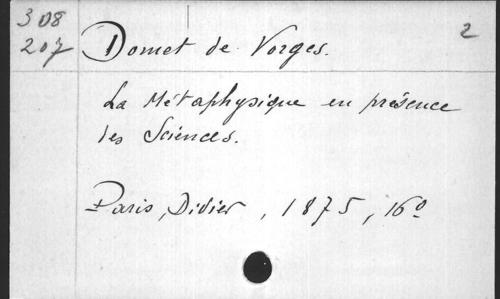 308
207
Domet de Vorges.
2
La Métaphysique en présence
les Sciences.
Paris, Didier, 1875, 16º